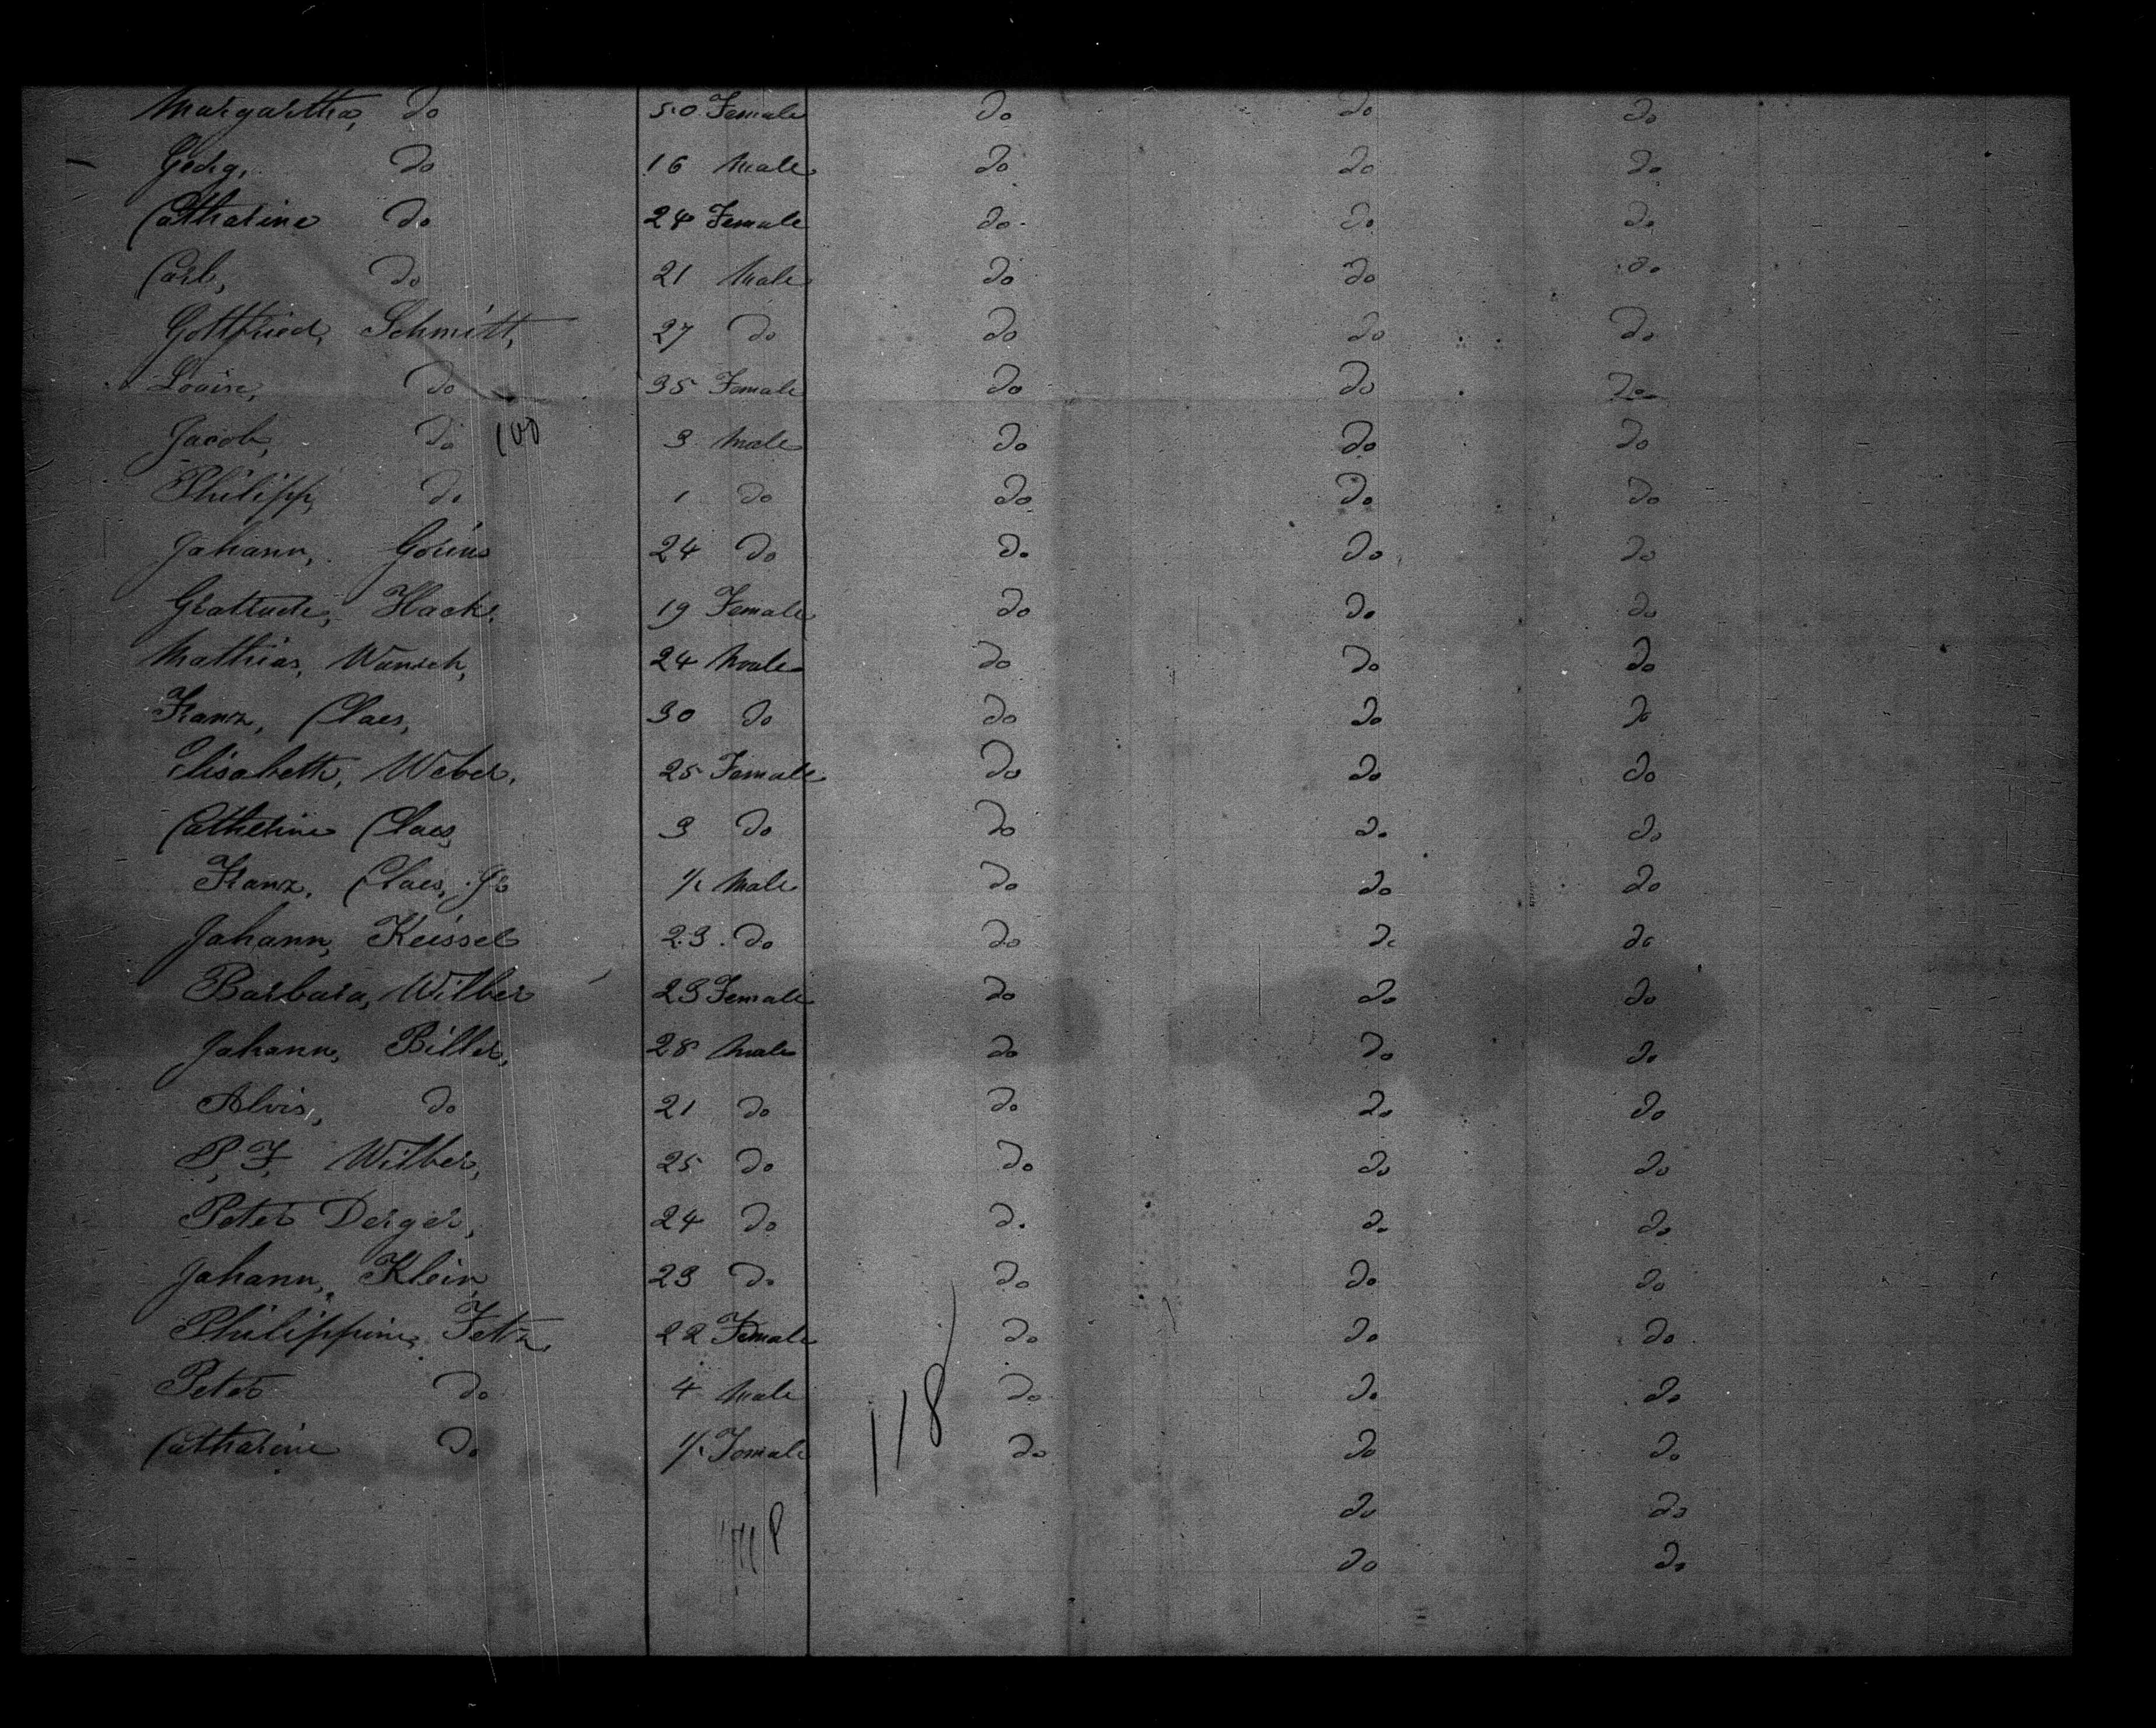 Margartha, do 50 Female do do do
Georg, do 16 Male do do do
Catharine do 24 Female do do do
Carl, do 21 Male do do do
Gottfried, Schmitt, 27 do do do do
Louise, do 35 Female do do do
Jacob, do 100 3 Male do do do
Philipp, do 1 do do do do
Johann, Gorius 24 do do do do
Gratrude, Hack. 19 Female do do do
Mathias, Wunsch, 24 Male do do do
Franz, Claes, 30 do do do do
Elisabeth, Weber. 25 Female do do do
Catherine Claes, 3 do do do do
Franz. Claes, Jr 1/2 Male do do do
Johann, Keissel 23. do do do do
Barbara, Wilber 23 Female do do do
Johann, Biller, 28 Male do do do
Alvis, do 21 do do do do
P. F. Wilber, 25 do do do do
Peter Derger, 24 do do do do
Johann, Klein, 23 do do do do
Philippine, Fetz 22 Female do do do
Peter do 4 Male do do do
Catharine do 1/2 Female do do do
118
do do
do do